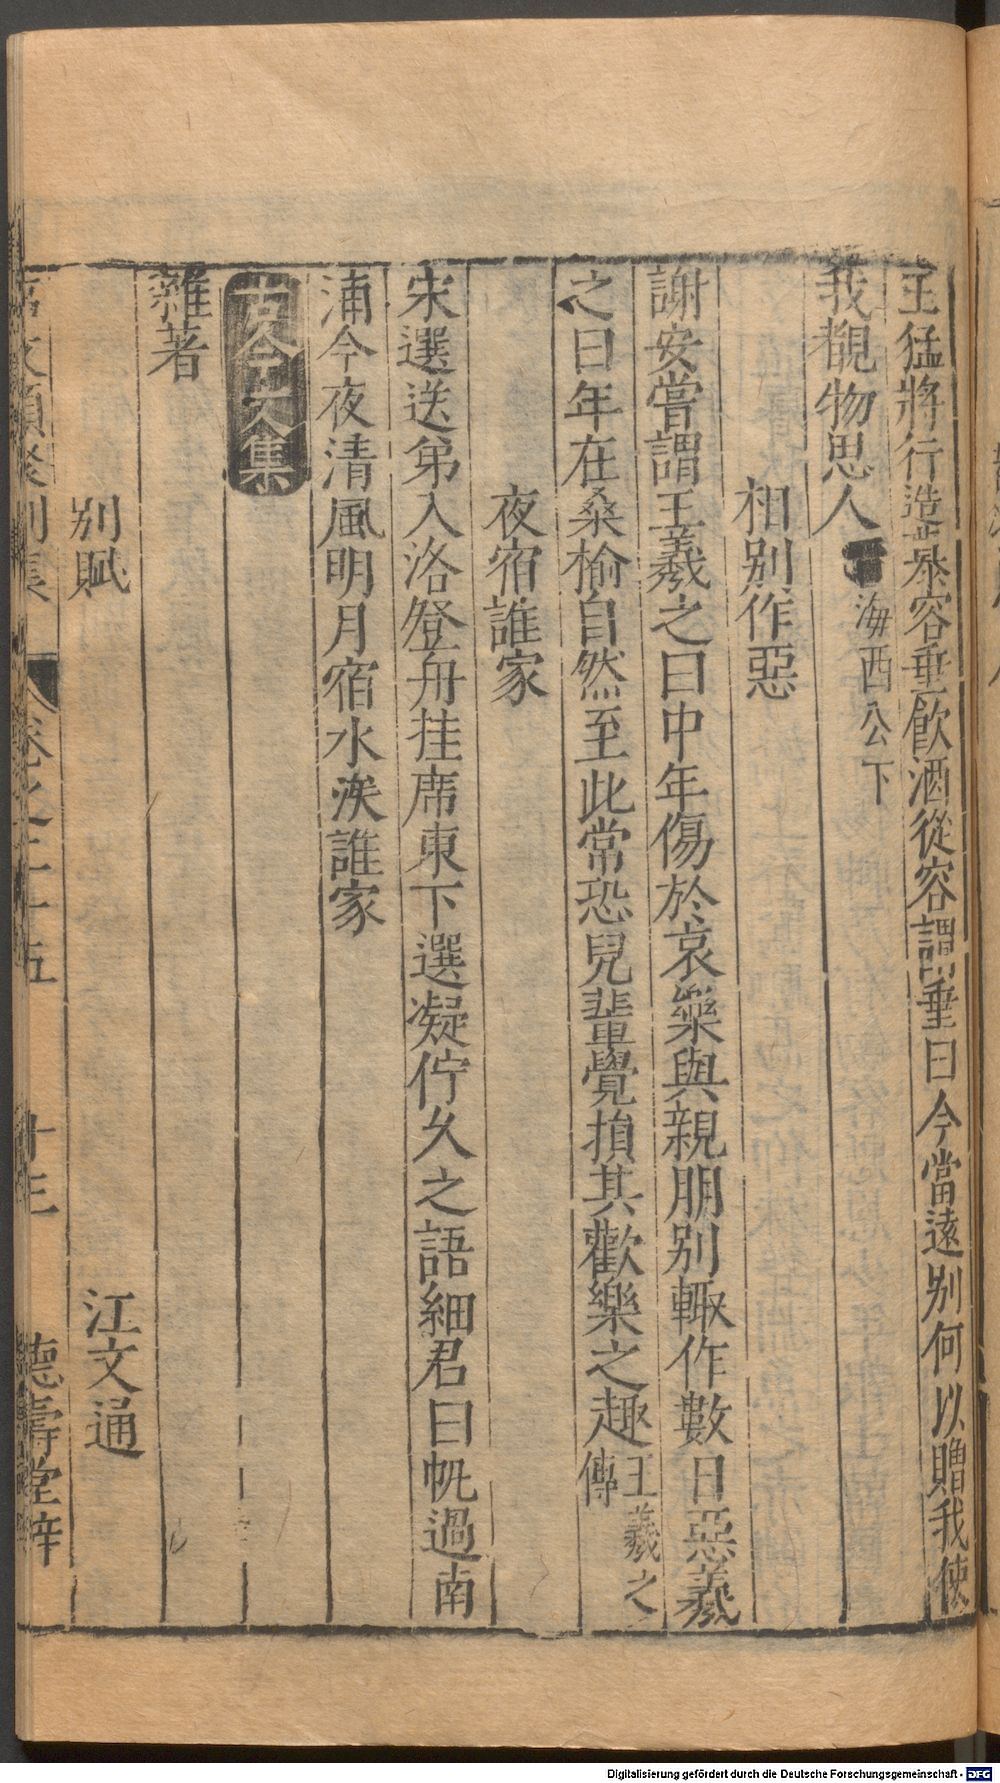 王猛將行造慕容垂飲酒從容謂垂曰今當遠別何以贈我使
我覩物思人
海西公下
相別作惡
謝安嘗謂王羲之曰中年傷於哀樂與親朋別輙作數日惡羲
之曰年在桑榆自然至此常恐兒輩覺損其歡樂之趣王羲之傳
夜宿誰家
宋選送弟入洛登舟挂席東下選凝佇久之語細君曰帆過南
浦今夜清風明月宿水涘誰家
古今文集
雜著
別賦 江文通
事文類聚別集 卷之二十五 十三 德壽堂梓
Digitalisierung gefördert durch die Deutsche Forschungsgemeinschaft - DFG